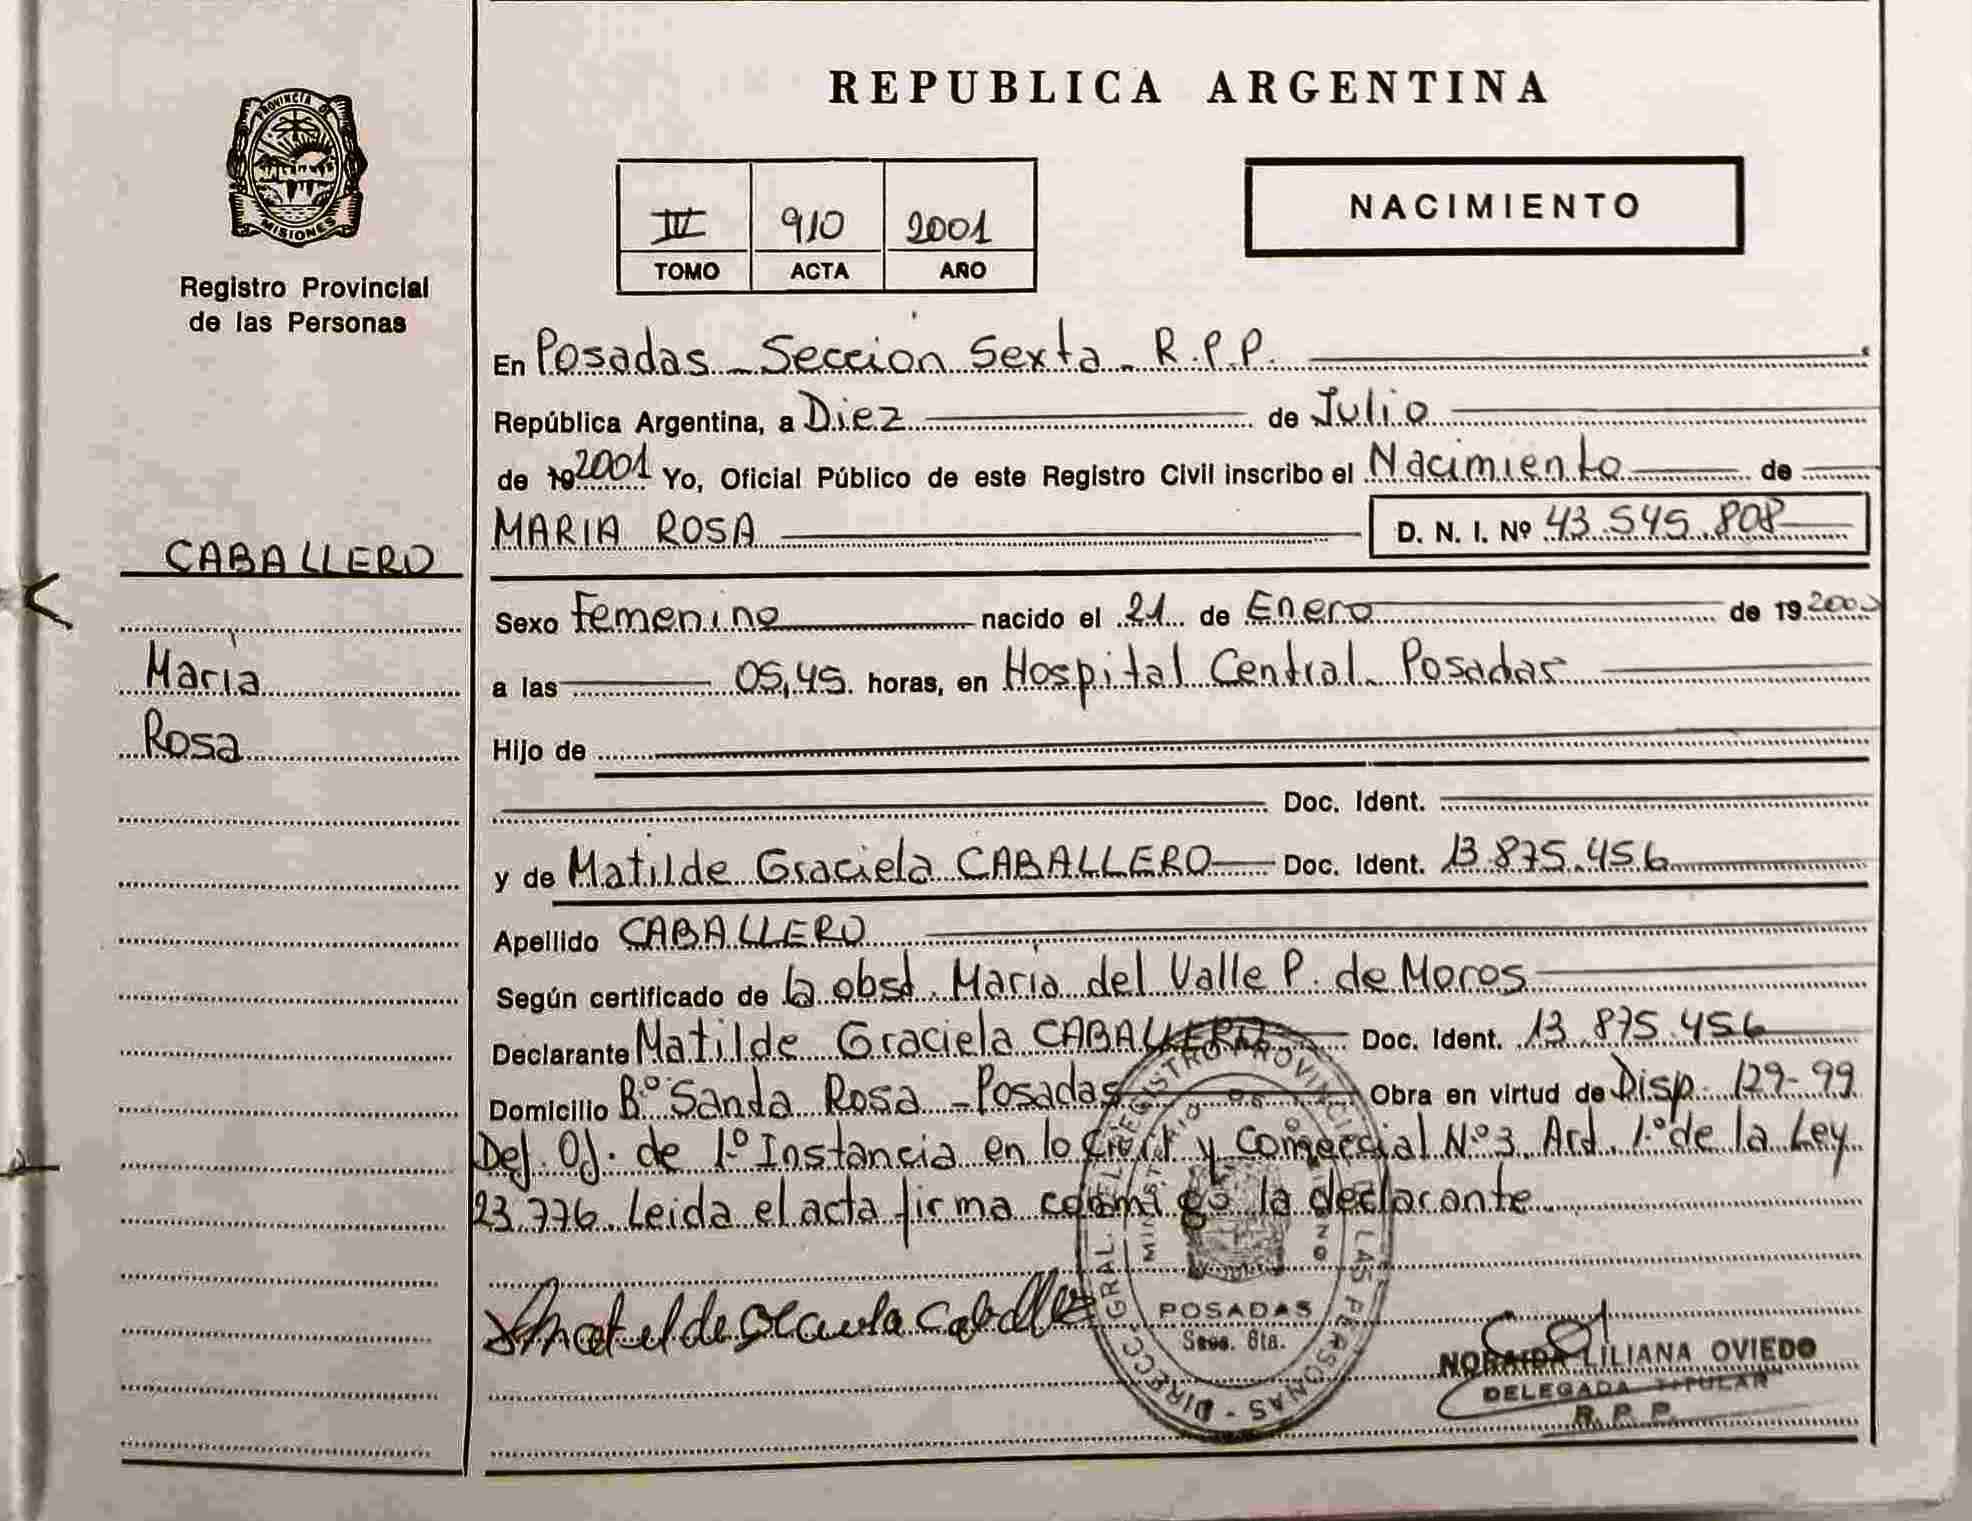 PROVINCIA DE
MISIONES
Registro Provincial
de las Personas
CABALLERO
María
Rosa
REPUBLICA ARGENTINA
IV 910 2001
TOMO ACTA AÑO
NACIMIENTO
En Posadas - Sección Sexta - R.P.P.
República Argentina, a Diez de Julio
de 19 2001 Yo, Oficial Público de este Registro Civil inscribo el Nacimiento de
MARIA ROSA D. N. I. Nº 43.545.808
Sexo Femenino nacido el 21 de Enero de 19 2000
a las 05,45 horas, en Hospital Central - Posadas
Hijo de
Doc. Ident.
y de Matilde Graciela CABALLERO Doc. Ident. 13.875.456
Apellido CABALLERO
Según certificado de la obst. María del Valle P. de Moros
Declarante Matilde Graciela CABALLERO Doc. Ident. 13.875.456
Domicilio Bº Santa Rosa - Posadas Obra en virtud de Disp. 129-99
Def. Of. de 1º Instancia en lo Civil y Comercial Nº 3 Art. 1º de la Ley
23.776. Leida el acta firma conmigo la declarante
Matilde Graciela Caballero
DIRECC. GRAL. DEL REGISTRO PROVINCIAL DE LAS PERSONAS -
POSADAS
Secc. 6ta.
NORAIDA LILIANA OVIEDO
DELEGADA TITULAR
R. P. P.